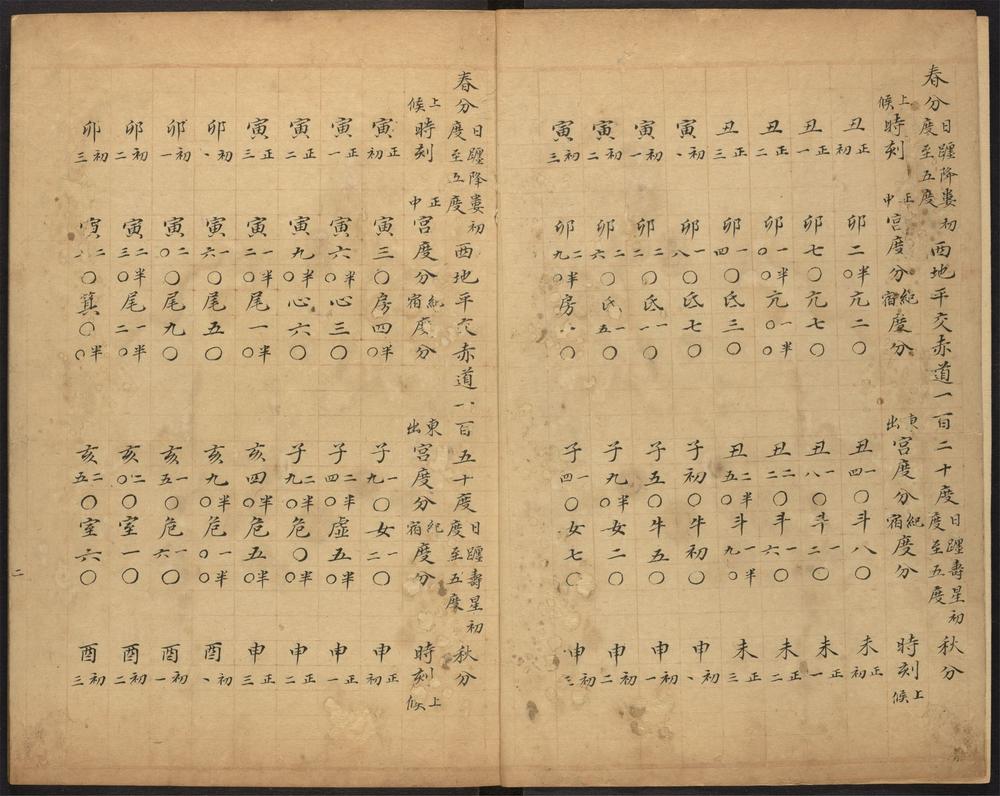 春分日躔降婁初度至五度西地平交赤道一百二十度日躔壽星初度至五度秋分
上候時刻正中宮度分紀宿度分東出宮度分紀宿度分時刻上候
丑正初卯二半〇亢二〇丑一四〇斗八〇未正初
丑正一卯七〇亢七〇丑一八〇斗一二〇未正一
丑正二卯一〇半〇亢一〇半〇丑二二〇斗一六〇未正二
丑正三卯一四〇氐三〇丑二五半〇斗一九半〇未正三
寅初、卯一八〇氐七〇子初〇牛初〇申初、
寅初一卯二二〇氐一一〇子五〇牛五〇申初一
寅初二卯二六〇氐一五〇子九半〇女二〇申初二
寅初三卯二九半〇房、〇子一四〇女七〇申初三
春分日躔降婁初度至五度西地平交赤道一百五十度日躔壽星初度至五度秋分
上候時刻正中宮度分紀宿度分東出宮度分紀宿度分時刻上候
寅正初寅三〇房四半〇子一九〇女一二〇申正初
寅正一寅六半〇心三〇子二四半〇虛五半〇申正一
寅正二寅九半〇心六〇子二九半〇危〇〇申正二
寅正三寅一二半〇尾一半〇亥四半〇危五半〇申正三
卯初、寅一六〇尾五〇亥九半〇危一〇半〇酉初、
卯初一寅二〇〇尾九〇亥一五〇危一六〇酉初一
卯初二寅二三半〇尾一二半〇亥二〇〇室一〇酉初二
卯初三寅二〇箕〇半〇亥二五〇室六〇酉初三
二